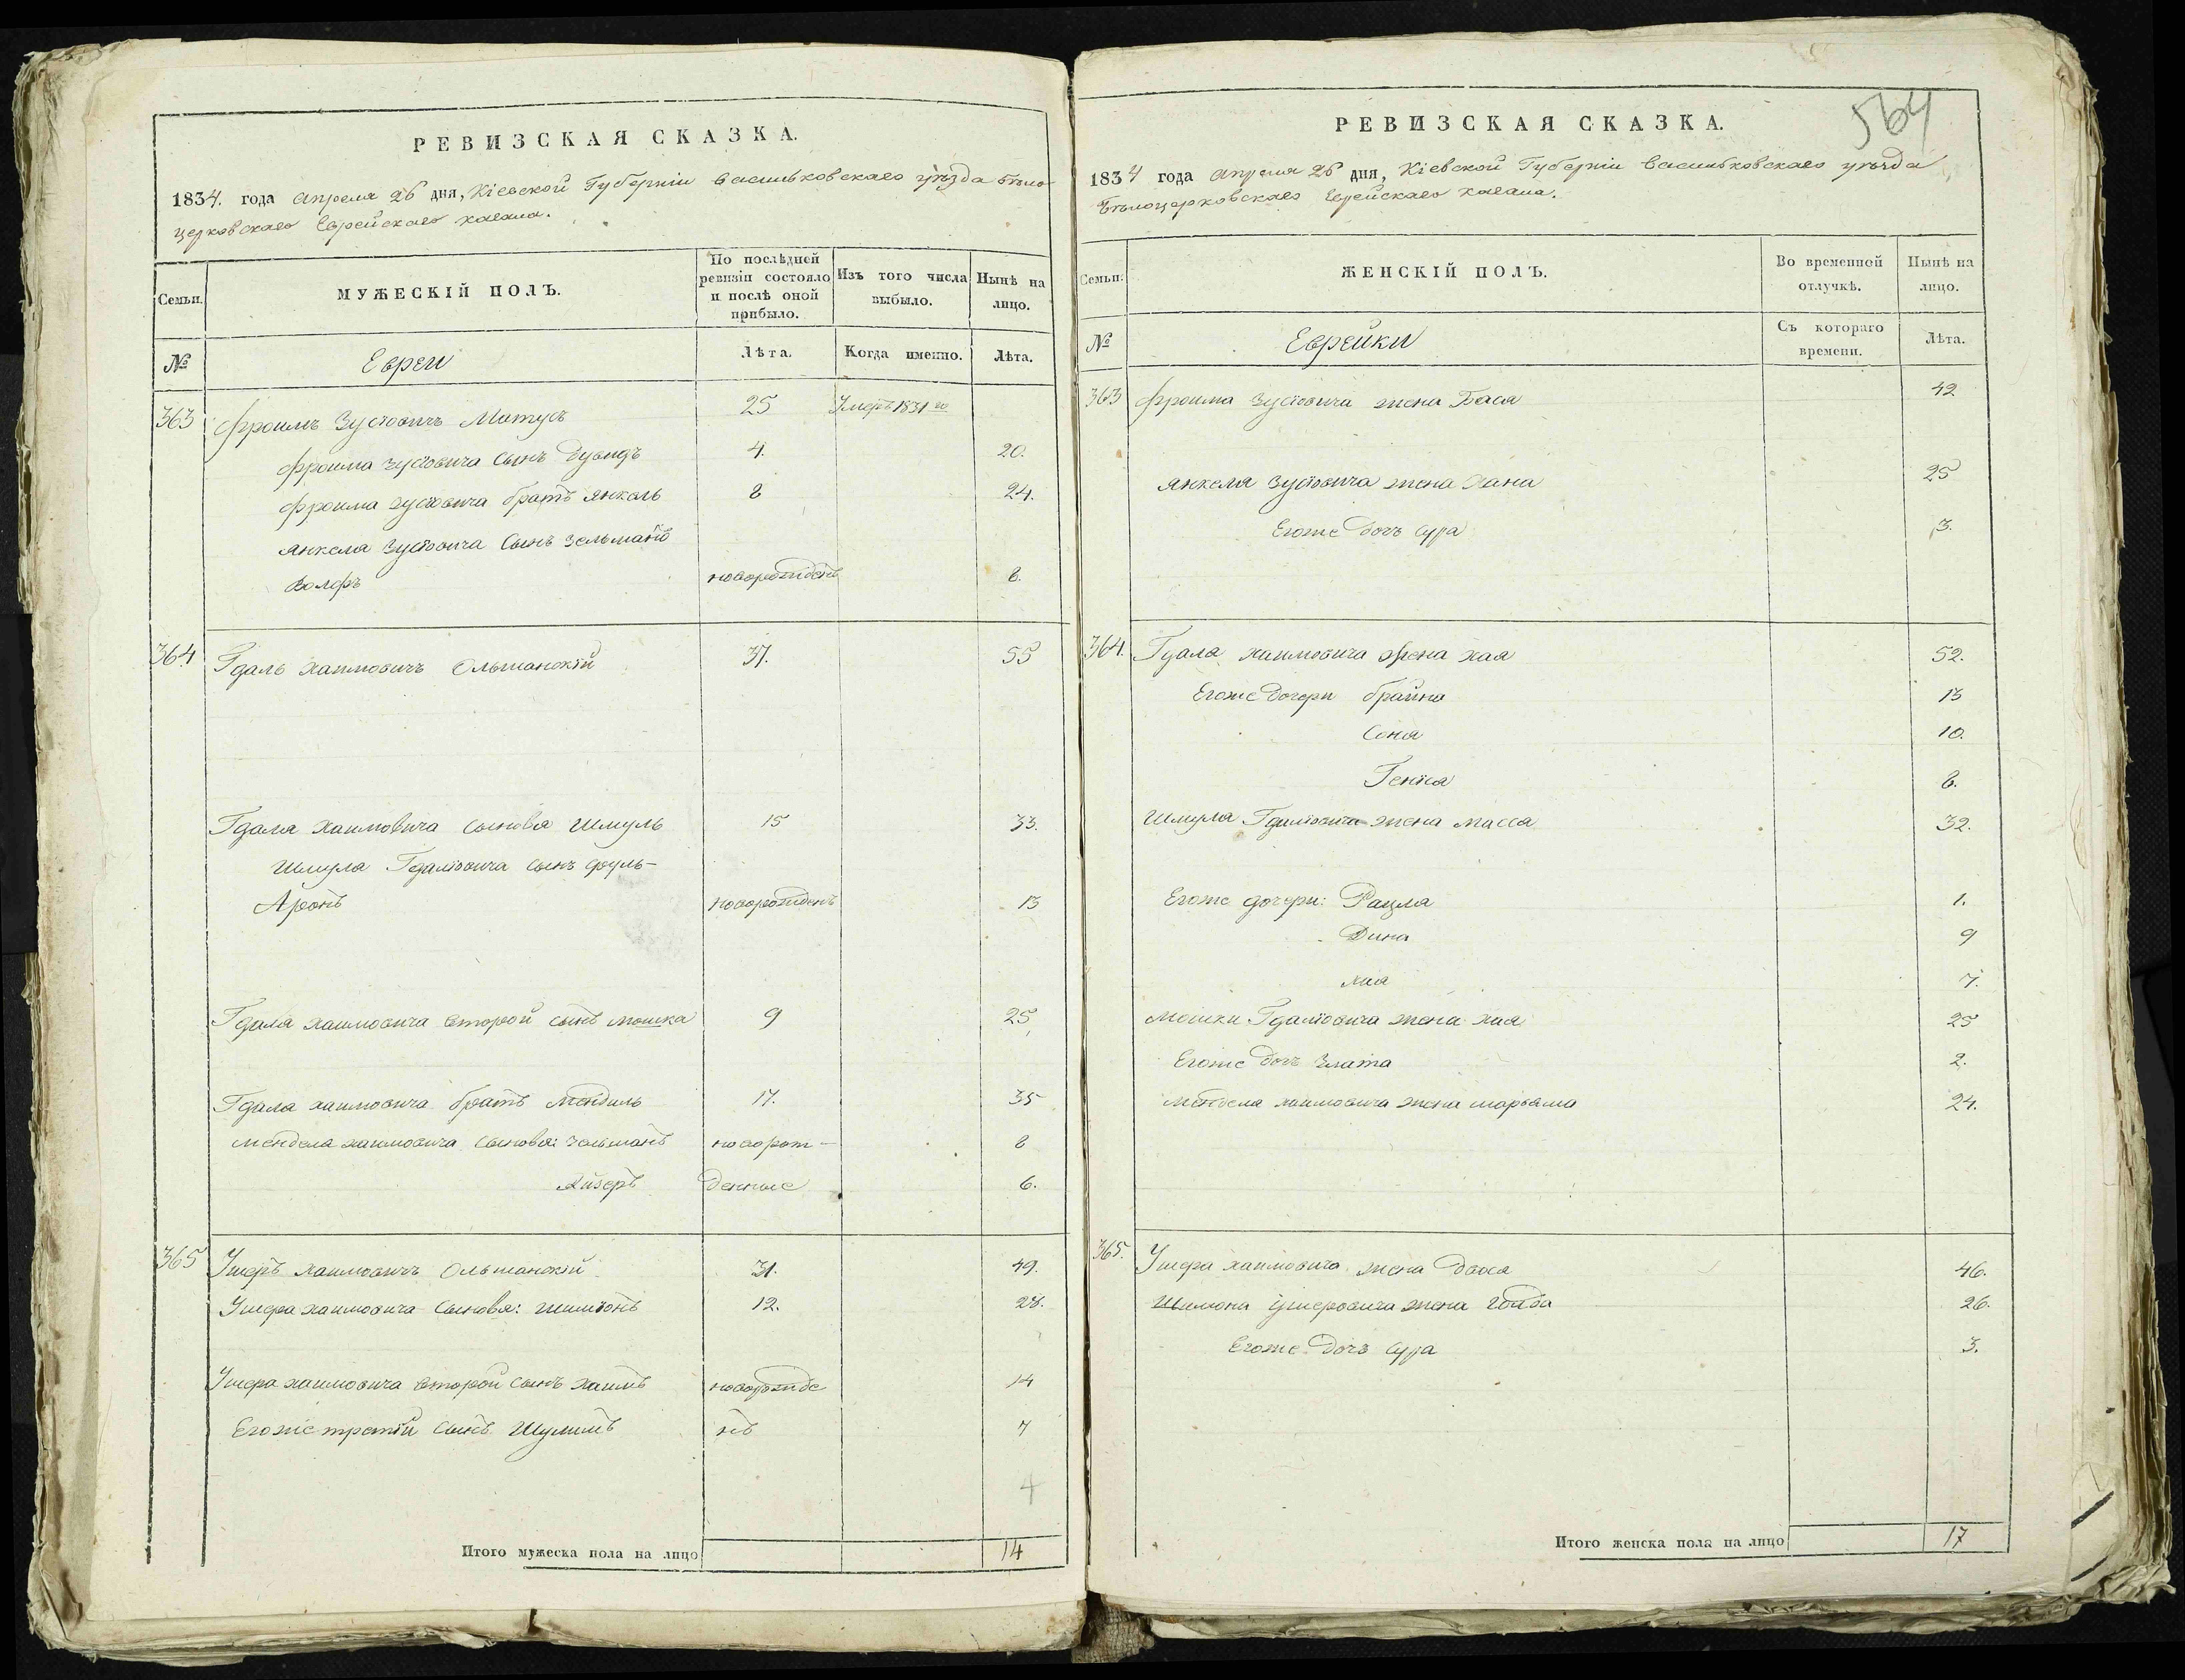 РЕВИЗСКАЯ СКАЗКА.
1834. года Апреля 26 дня, Кіевской Губерніи Васильковскаго уѣзда Бѣло-
церковскаго Еврейскаго кагала.
Семьи.
МУЖЕСКІЙ ПОЛЪ.
По послѣдней ревизіи состояло и послѣ оной прибыло.
Изъ того числа выбыло.
Нынѣ на лицо.
№
Евреи
Лѣта.
Когда именно.
Лѣта.
363 Фроимъ Зусіовичъ Матусъ 25 Умеръ 1831го
Фроима Зусіовича сынъ Дувидъ 4. 20.
Фроима Зусіовича братъ Янкель 8 24.
Янкеля Зусіовича сынъ Зельманъ
Волфъ новорожденъ 8.
364 Гдаль Хаимовичъ Ольшанскій 37. 55
Гдаля Хаимовича сыновья Шмуль 15 33.
Шмуля Гдаліовича сынъ Сруль-
Аронъ новорожденъ 13
Гдаля Хаимовича второй сынъ Мошка 9 25
Гдаля Хаимовича братъ Мендиль 17. 35
Мендела Хаимовича сыновья: Зельманъ новорож- 8
Лизеръ денные 6.
365 Ушеръ Хаимовичъ Ольшанскій 31. 49.
Ушера Хаимовича сыновья: Шимионъ 12. 28.
Ушера Хаимовича второй сынъ Хаимъ новорожде 14
Егоже третій сынъ Шулимъ нъ 7
4
Итого мужеска пола на лицо 14
564
РЕВИЗСКАЯ СКАЗКА.
1834 года Апреля 26 дня, Кіевской Губерніи Васильковскаго уѣзда
Бѣлоцерковскаго Еврейскаго кагала.
Семьи.
ЖЕНСКІЙ ПОЛЪ.
Во временной отлучкѣ.
Нынѣ на лицо.
№
Еврейки
Съ котораго времени.
Лѣта.
363 Фроима Зусіовича жена Бася 42
Янкеля Зусіовича жена Хана 25
Егоже дочь Сура 3.
364. Гдаля Хаимовича жена Хая 52.
Егоже дочери Брайна 13
Соня 10.
Генія 8.
Шмуля Гдаліовича жена Масса 32.
Егоже дочери: Рацля 1.
Дина 9
Лия 7.
Мошки Гдаліовича жена Хая 25
Егоже дочь Злата 2.
Мендела Хаимовича жена Марьяма 24.
365. Ушера Хаимовича жена Двося 46.
Шимона Ушеровича жена Голда 26.
Егоже дочь Сура 3.
Итого женска пола на лицо 17